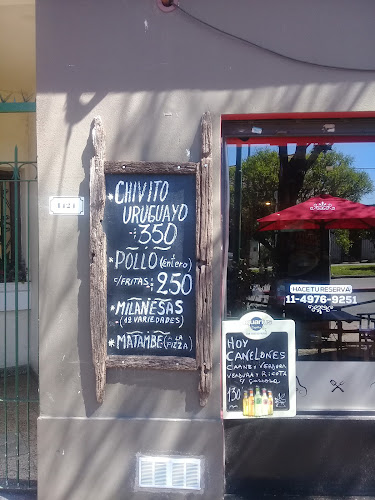 1121
*CHIVITO
URUGUAYO
$350
*POLLO (entero)
C/FRITAS $250
*MILANESAS
-(18 VARIEDADES)
*MATAMBE (A LA PIZZA)
HACE TU RESERVA
11-4976-9251
HOY
CANELONES
CARNE Y VERDURA
VERDURA Y RICOTA
130